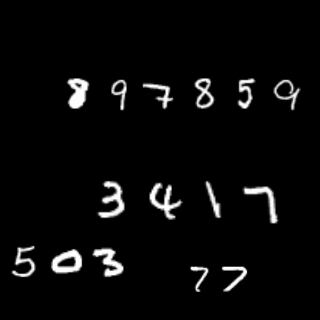 897859
3417
503
77